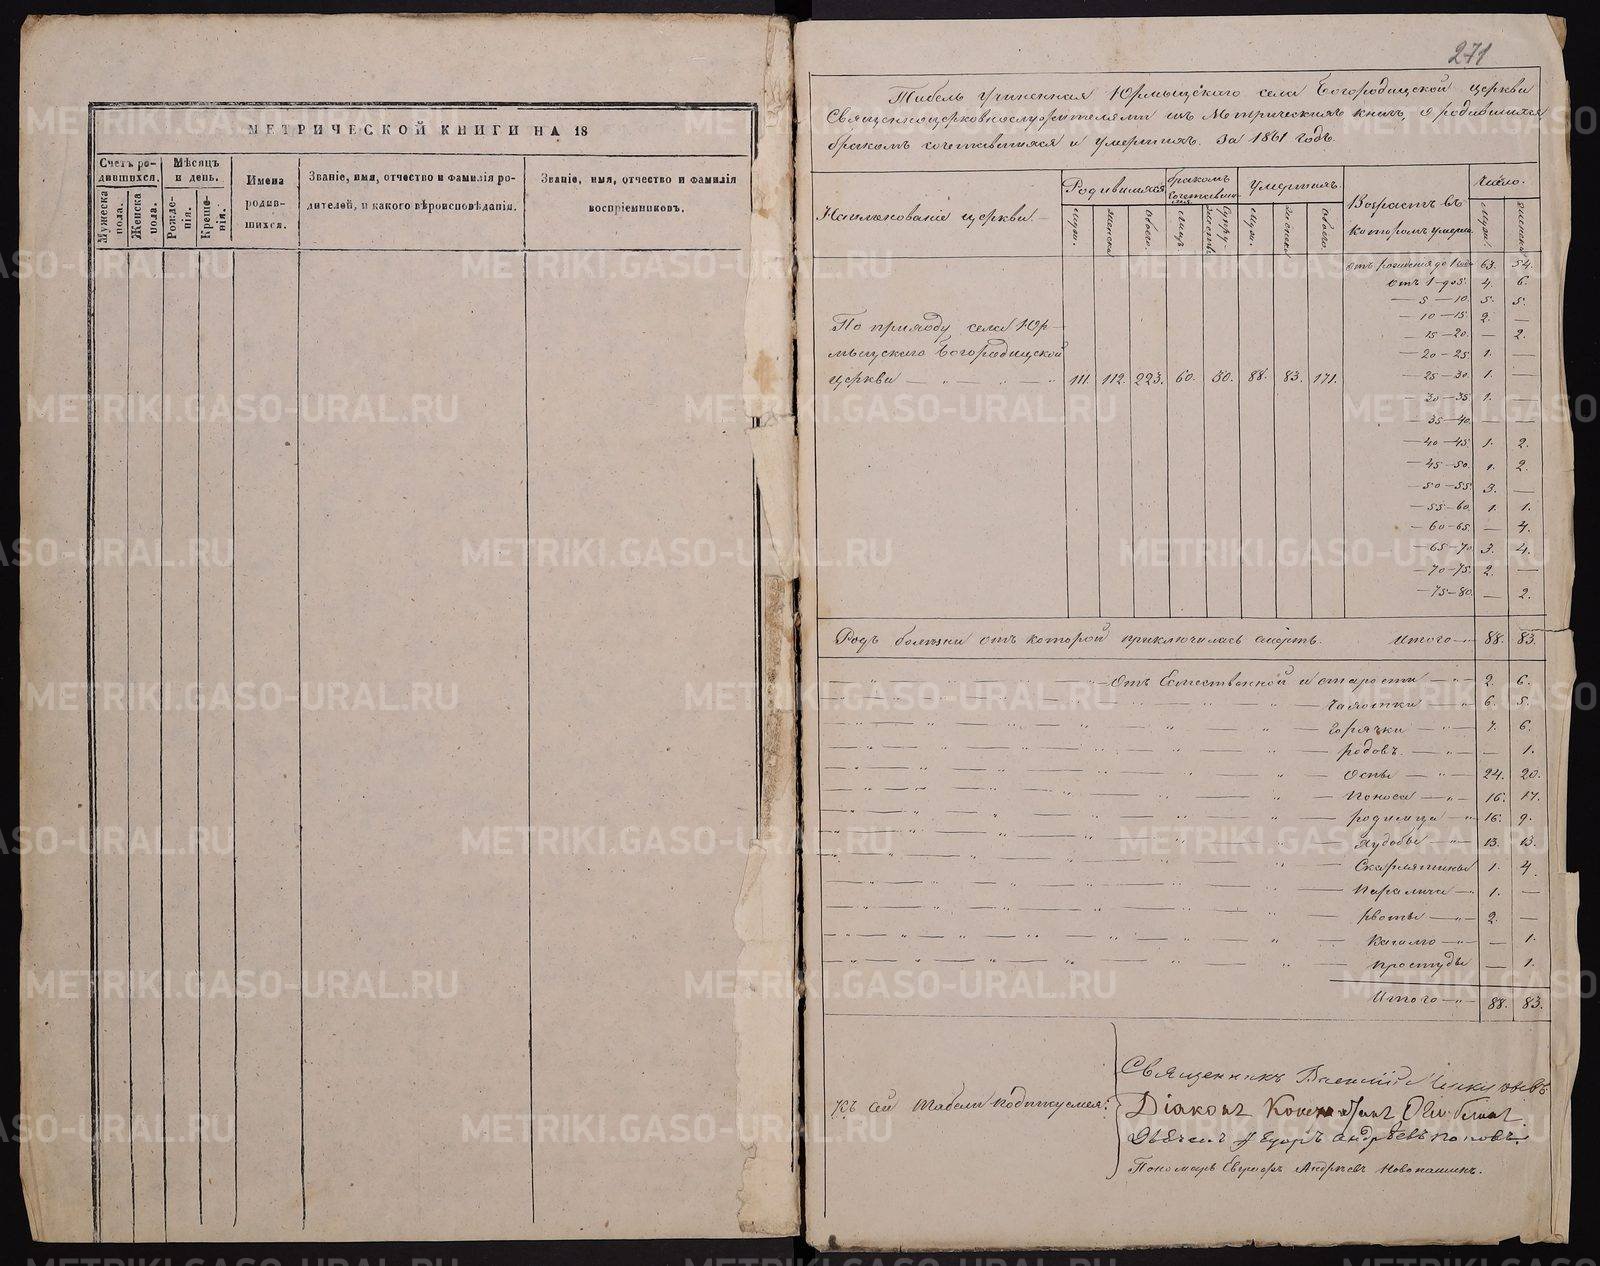 МЕТРИЧЕСКОЙ КНИГИ НА 18
Счетъ родившихся.
Мѣсяцъ и день.
Имена родившихся.
Званіе, имя, отчество и фамилія родителей, и какого вѣроисповѣданія.
Званіе, имя, отчество и фамилія воспріемниковъ.
Мужеска пола.
Женска пола.
Рожденія.
Крещенія.
271
Табель учиненная Юрмыцкаго села Богородицкой церкви
Священноцерковнослужителями изъ Метрическихъ книгъ, о родившихся
бракомъ сочетавшихся и умершихъ. За 1861 годъ.
Наименованіе церкви.
Родившихся
бракомъ
Умершихъ.
Возрастъ въ которомъ умерли.
Число.
муж. женска обоего. муж. женск. обоего муж. женска
отъ рожденія до 1 года 63. 54.
отъ 1 до 5. 4. 6.
— 5 — 10. 5. 5.
— 10 — 15. 2. —
15 — 20. — 2.
— 20 — 25. 1. —
— 25 — 30. 1. —
— 30 — 35. 1. —
— 35 — 40. — —
— 40 — 45. 1. 2.
— 45 — 50. 1. 2.
— 50 — 55. 3. —
— 55 — 60. 1. 1.
— 60 — 65. — 4.
— 65 — 70. 3. 4.
— 70 — 75. 2. —
— 75 — 80. — 2.
По приходу села Юр-
мыцкаго Богородицкой
церкви — „ — „ — „ 111. 112. 223. 60. 50. 88. 83. 171.
Родъ болѣзни отъ которой приключилась смерть. Итого — 88. 83.
Отъ Естественной и старости — „ — 2. 6.
Чахотки „ 6. 5.
Горячки — „ — 7. 6.
родовъ. — „ — — 1.
Оспы — „ — 24. 20.
Поноса — „ — 16. 17.
родимца — „ 16. 9.
Худобы „ — 13. 13.
Скарлатины 1. 4.
Паралича — „ 1. —
рвоты — „ — 2. —
Кашлю — „ — — 1.
простуды — 1.
Итого — „ — 88. 83.
Къ сей табели подпису
Священникъ Василій
Діаконъ
Егоръ Андрѣевъ Поповъ.
Пономарь Андрѣевъ Новопашинъ.
METRIKI.GASO-URAL.RU